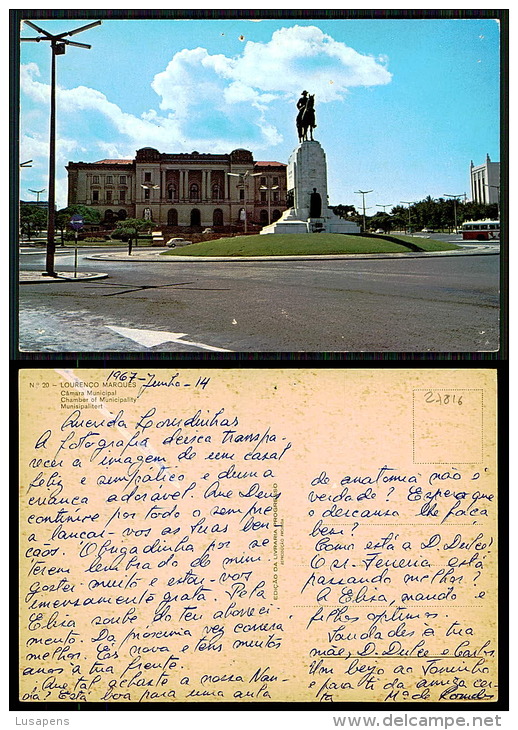 Nº 20 – LOURENCO MARQUES
Câmara Municipal
Chamber of Municipality
Munisipaliteit
1967 - Junho - 14
27816
Querida
A fotografia deixa transpa-
recer a imagem de um casal
feliz e simpático e duma
criança adorável. Que Deus
continue por todo o sempre
a lançar-vos as suas ben
çãos. Obrigadinha por se
terem lembrado de mim.
gostei muito e estou-vos
imensamente grata. Pela
Elisa soube do teu aborreci-
mento. Da próxima vez correrá
melhor. És nova e tens muitos
anos à tua frente.
Que tal achaste a nossa Nan-
Está boa para uma aula
EDIÇÃO DA LIVRARIA PROGRESSO
de anatomia não é
verdade? Espero que
o descanso lhe faça
bem?
Como está a D. Dulce?
O sr. Ferreira está
passando melhor?
A Elisa, marido e
filhos óptimos.
Saudades à tua
mãe, D. Dulce e Carlos
Um beijo ao
e para ti da amiga cer-
ta Mª de
Lusapens